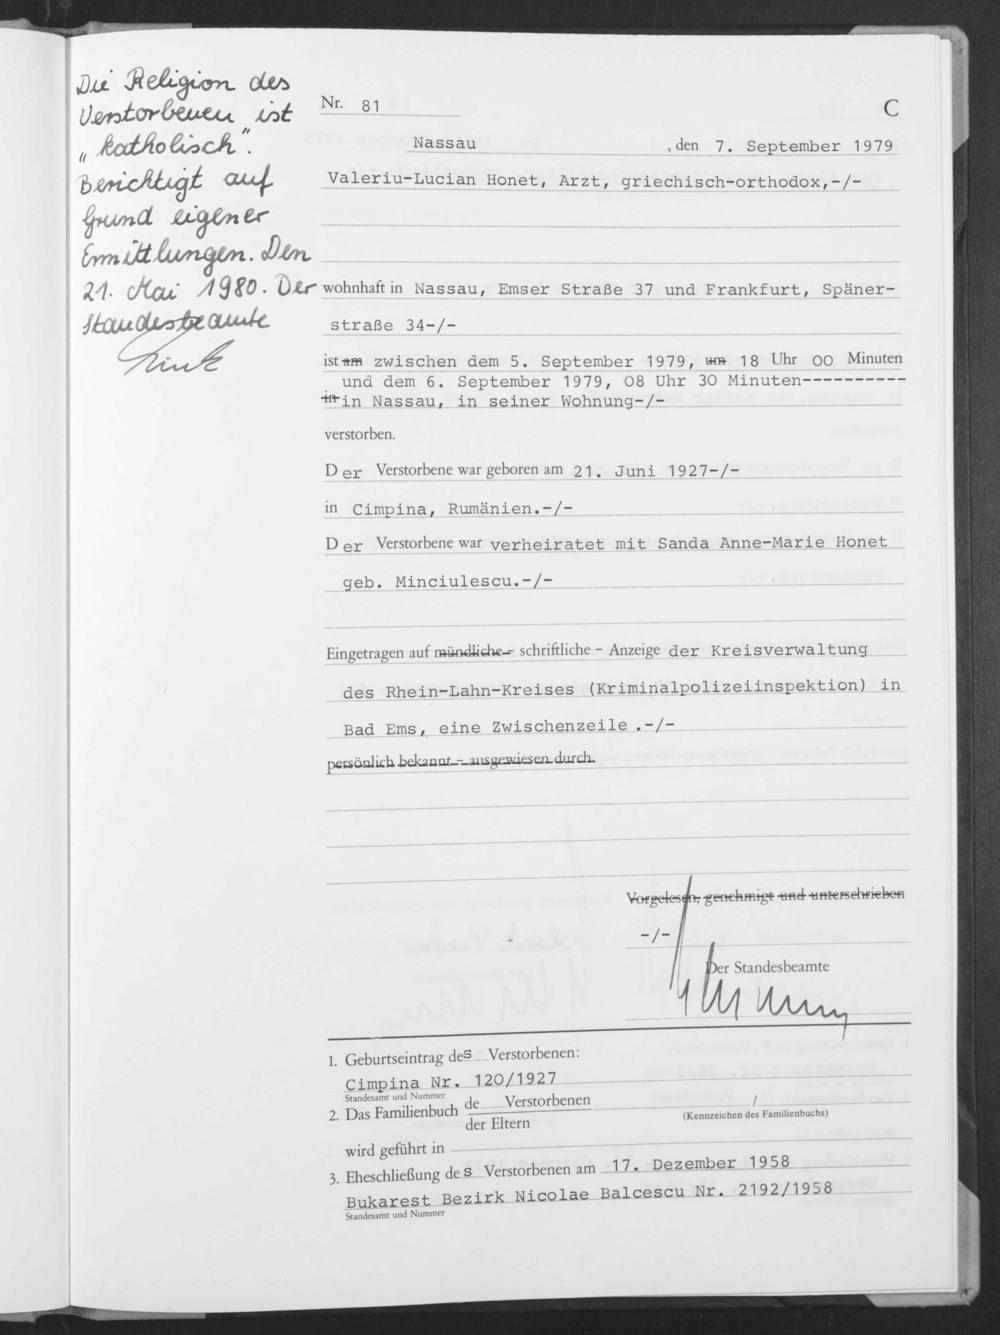 Die Religion des
Verstorbenen ist
„katholisch".
Berichtigt auf
Grund eigener
Ermittlungen. Den
21. Mai 1980. Der
Standesbeamte
Nr. 81
C
Nassau, den 7. September 1979
Valeriu-Lucian Honet, Arzt, griechisch-orthodox,-/-
wohnhaft in Nassau, Emser Straße 37 und Frankfurt, Späner-
straße 34-/-
ist am zwischen dem 5. September 1979, um 18 Uhr 00 Minuten
und dem 6. September 1979, 08 Uhr 30 Minuten----------
in in Nassau, in seiner Wohnung-/-
verstorben.
Der Verstorbene war geboren am 21. Juni 1927-/-
in Cimpina, Rumänien.-/-
Der Verstorbene war verheiratet mit Sanda Anne-Marie Honet
geb. Minciulescu.-/-
Eingetragen auf mündliche - schriftliche - Anzeige der Kreisverwaltung
des Rhein-Lahn-Kreises (Kriminalpolizeiinspektion) in
Bad Ems, eine Zwischenzeile.-/-
persönlich bekannt - ausgewiesen durch
Vorgelesen, genehmigt und unterschrieben
-/-
Der Standesbeamte
1. Geburtseintrag des Verstorbenen:
Cimpina Nr. 120/1927
Standesamt und Nummer
2. Das Familienbuch de Verstorbenen /
der Eltern (Kennzeichen des Familienbuchs)
wird geführt in
3. Eheschließung des Verstorbenen am 17. Dezember 1958
Bukarest Bezirk Nicolae Balcescu Nr. 2192/1958
Standesamt und Nummer